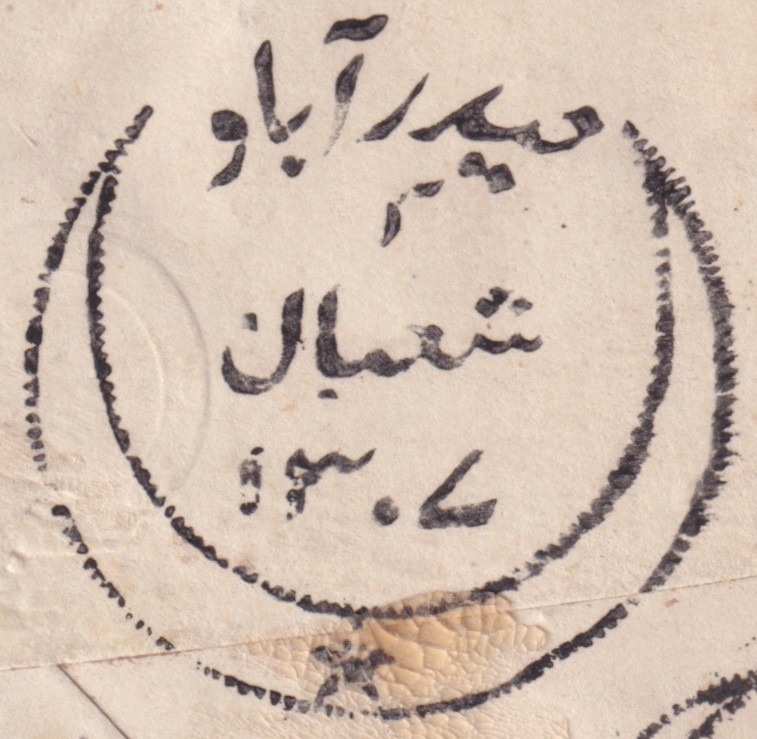 حیدرآباد
۲
شعبان
۱۳۰۷